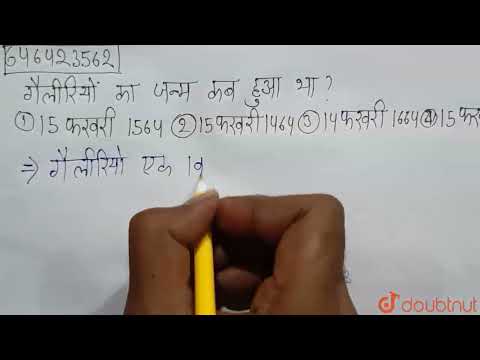 646423562
गैलीरियों का जन्म कब हुआ था?
① 15 फरवरी 1564 ② 15 फरवरी 1464 ③ 14 फरवरी 1664 ④ 15 फरव
⇒ गैलीरियो एक
doubtnut